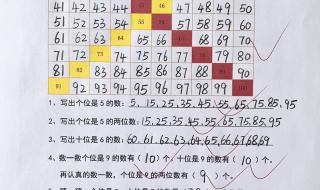 41 42 43 44 46 47 48 49 50
51 52 53 54 57 58 59 60
61 62 63 64 65 66 68 69 70
71 72 73 74 75 76 77 79 80
81 82 84 85 86 87 88 90
91 92 93 94 95 96 97 98 99 100
1、写出个位是5的数：5、15、25、35、45、55、65、75、85、95
2、写出个位是5的两位数：15、25、35、45、55、65、75、85、95
3、写出十位是6的数：60、61、62、63、64、65、66、67、68、69
4、数一数个位是9的数有（10）个，十位是9的数有（10）个。
再认真数一数，个位是9的两位数有（9）个。